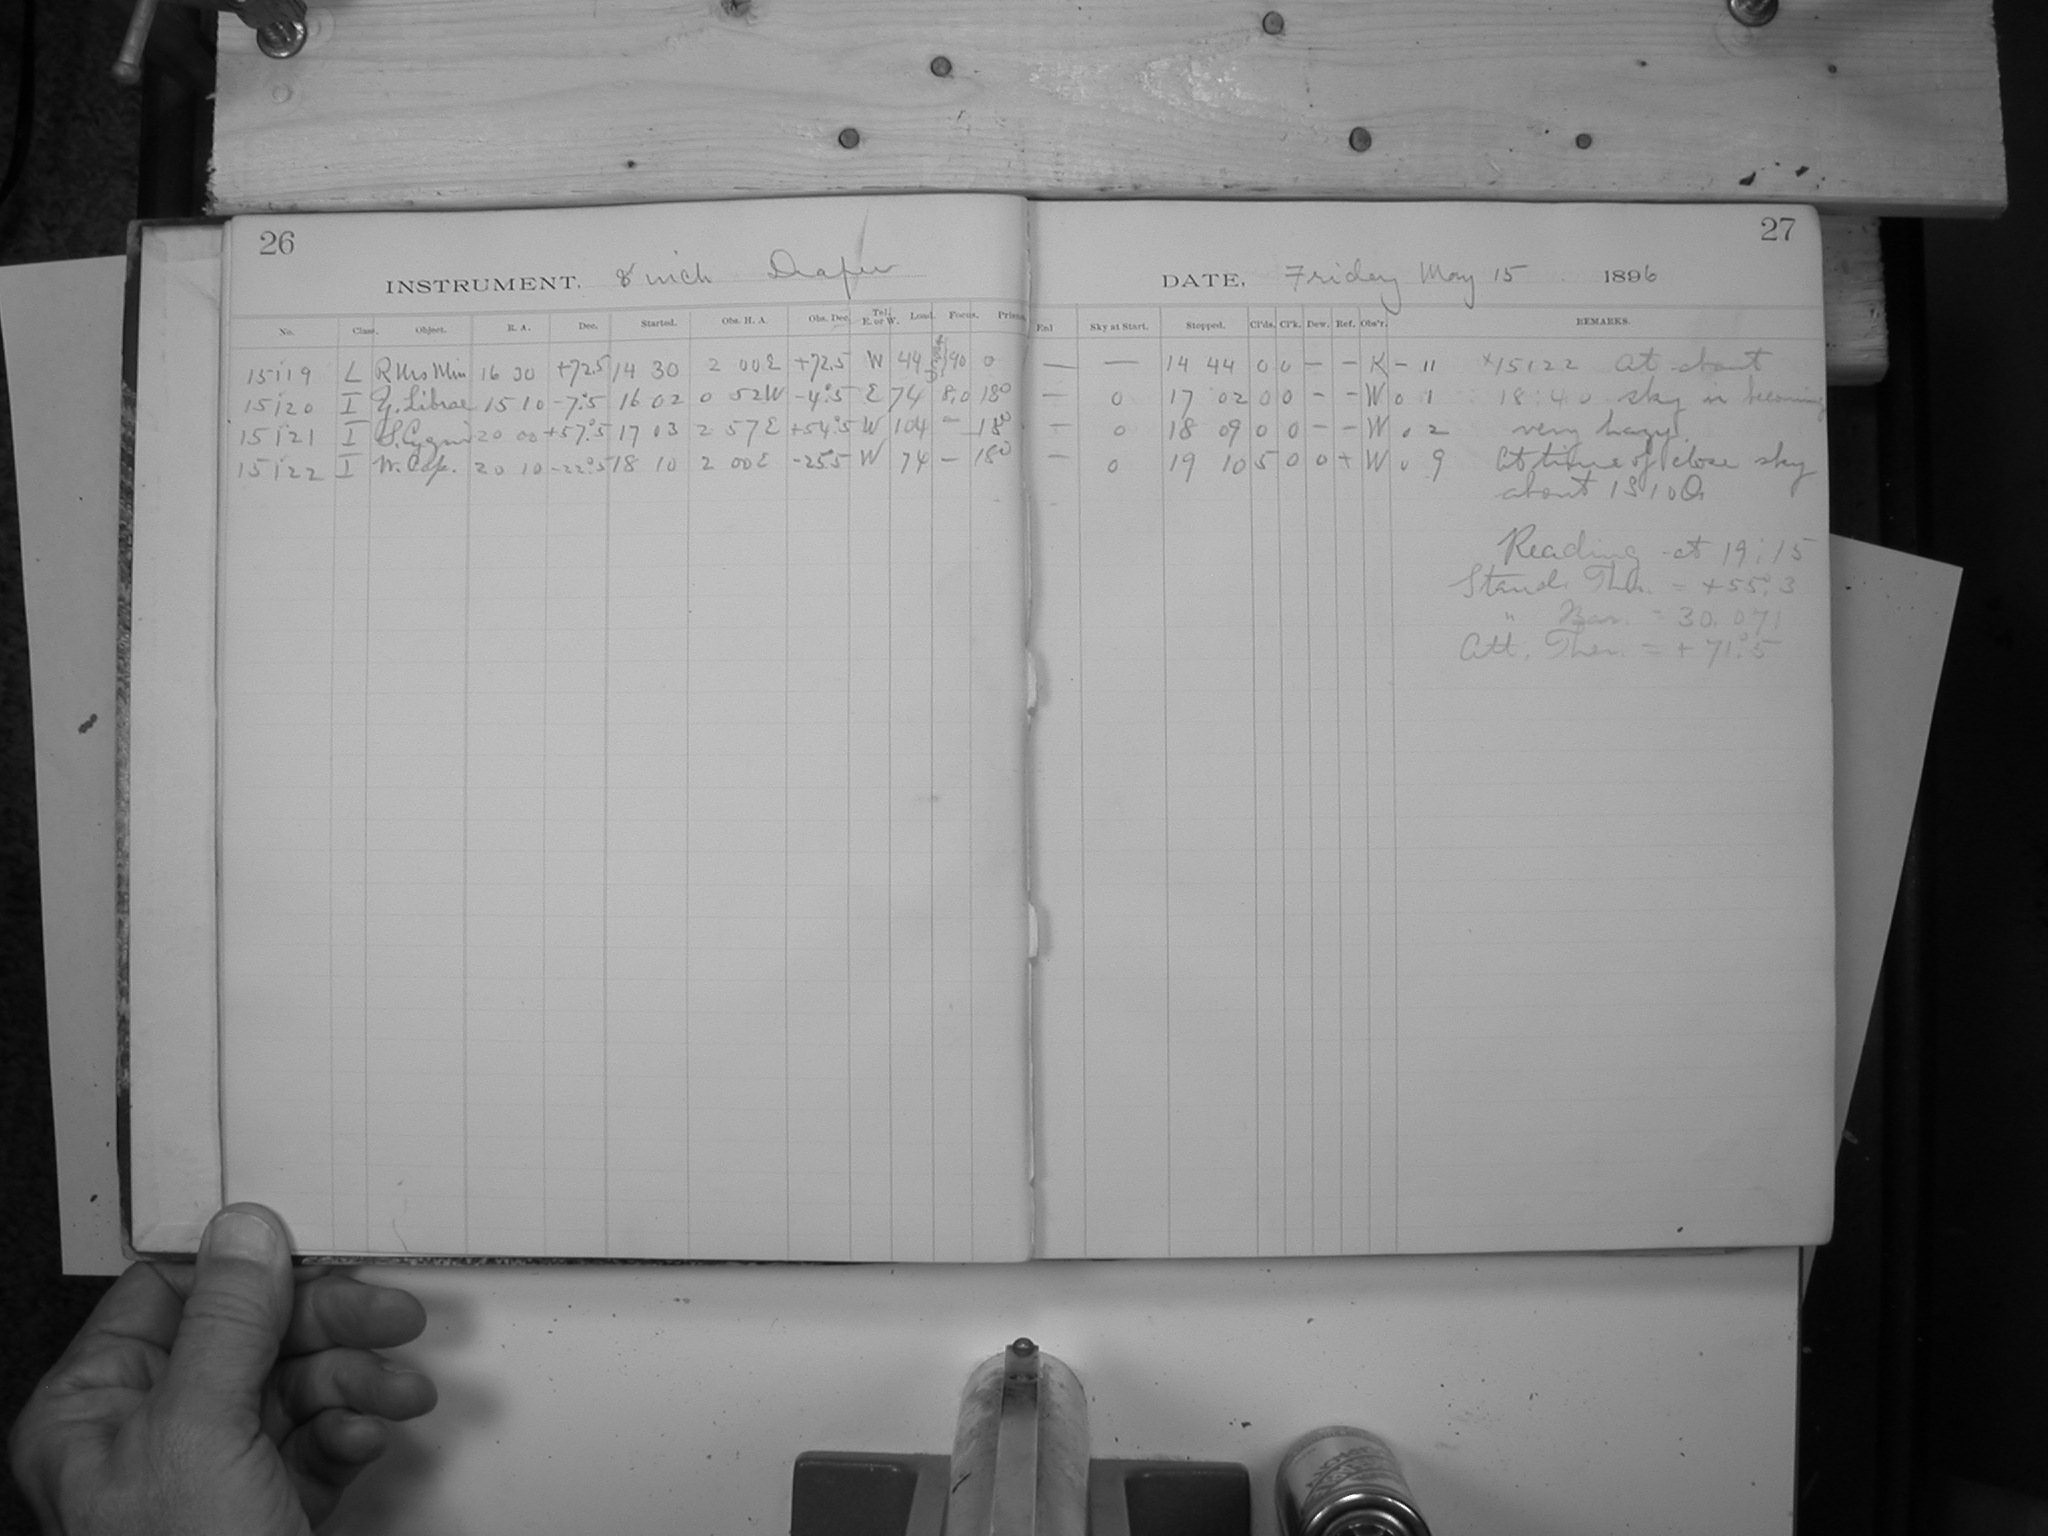 26
INSTRUMENT. 8 inch Draper
No. Class. Object. R. A. Dec. Started. Obs. H. A. Obs. Dec. Tel. E. or W. Load. Focus. Prism
15119 L R Urs Min 16 30 +72.5 14 30 2 00 E +72.5 W 44 90 0
15120 I Y. Librae 15 10 -7°.5 16 02 0 52 W -4°.5 E 74 8.0 18°
15121 I S. Cygni 20 00 +57°.5 17 03 2 57 E +54°.5 W 104 — 18°
15122 I W. Cap. 20 10 -22°.5 18 10 2 00 E -25.5 W 74 — 18°
27
DATE, Friday May 15 1896
Sky at Start. Stopped. Cl'ds. Cl'k. Dew. Ref. Obs'r. REMARKS.
— — 14 44 0 0 — — K — 11 ×15122 At about
— 0 17 02 0 0 — — W 0 1 18:40 sky is becoming
— 0 18 09 0 0 — — W 0 2 very hazy.
— 0 19 10 5 0 0 + W 0 9 At time of close sky
about
Reading at 19:15
Stand. Ther. = +55°.3
" Bar. = 30.071
Att. Ther. = +71°.5